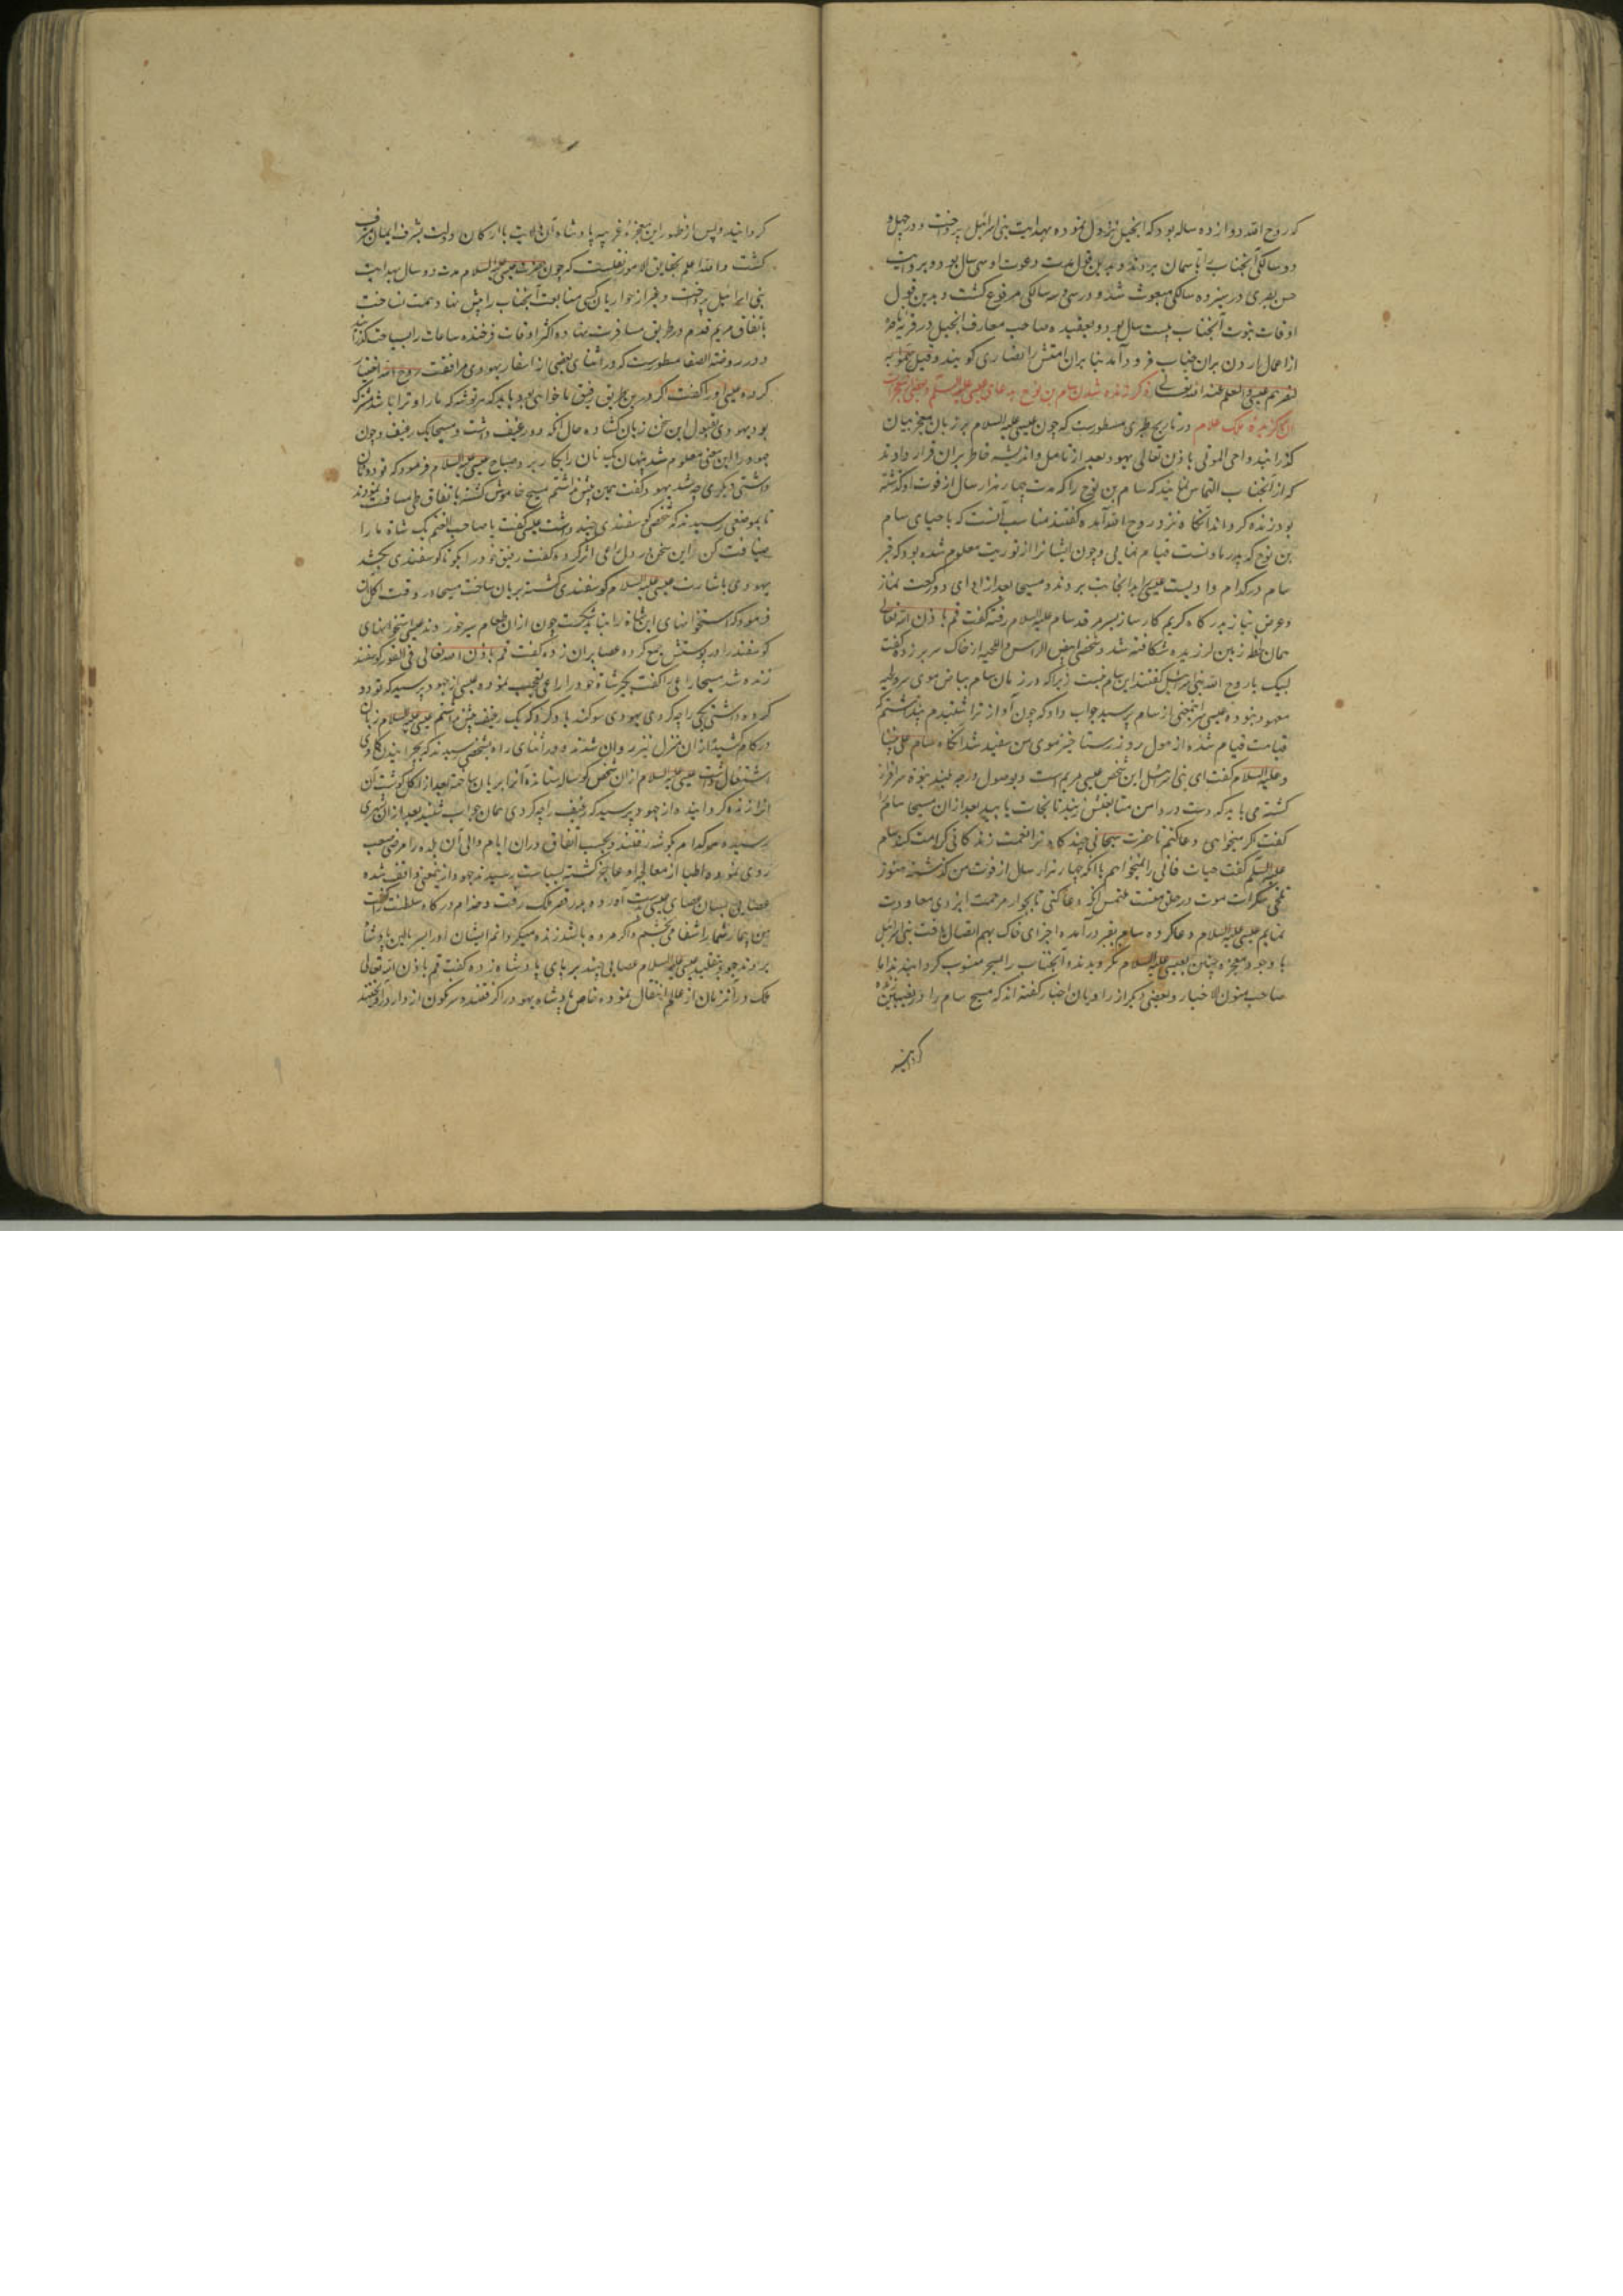 که روح الله دوازده ساله بود که انجیل نزول نموده بهدایت بنی اسرائیل پرداخت و در چهل و
دو سالگی آنجناب را بآسمان بردند و بدین قول مدت دعوت او سی سال بود و بروایت
حسن بصری در سیزده سالکی مبعوث شد و در سی و سه سالکی مرفوع کشت و بدین قول
اوقات نبوت آنجناب بیست سال بود و بعقیده صاحب معارف انجیل در قریه ناصره
از اعمال اردن بران جناب فرود آمد بنا بران امتش را نصاری کویند و قیل سموا به
لنصرتهم عیسی والعلم عند الله تعالی ذکر زنده شدن سام بن نوح بدعای عیسی علیه السلام و بعضی
در تاریخ طبری مسطورست که چون عیسی علیه السلام بر زبان معجز بیان
کذرانید و احی الموتی باذن الله تعالی یهود بعد از تامل و اندیشه خاطر بران قرار دادند
که از آنجناب التماس نمایند که سام بن نوح را که مدت چهار هزار سال از فوت او کذشته
بود زنده کرداند آنکاه نزد روح الله آمده کفتند مناسب آنست که باحیای سام
بن نوح که پدر ماست قیام نمایی و چون ایشانرا از توریت معلوم شده بود که قبر
سام در کدام وادیست عیسی را بدانجانب بردند و مسیحا بعد از ادای دو رکعت نماز
و عرض نیاز بدرکاه کریم کارساز بسر مرقد سام علیه السلام رفته کفت قم باذن الله تعالی
همان لحظه زمین لرزیده شکافته شد و شخصی ابیض الراس و اللحیه از خاک سر بر زده کفت
لبیک یا روح الله بنی اسرائیل کفتند این سام نیست زیرا که در زمان سام بیاض موی سر و لحیه
معهود نبوده عیسی از سام پرسید جواب داد که چون آواز ترا شنیدم پنداشتم که
قیامت قیام شده از هول روز رستاخیز موی من سفید شد آنکاه سام علی نبینا
و علیه السلام کفت ای بنی اسرائیل این شخص عیسی مریم است و بوصول درجه بلند نبوت سرافراز
کشته می باید که دست در دامن متابعتش زنید تا نجات یابید بعد از ان مسیحا سام را
کفت اکر میخواهی دعا کنم تا حضرت سبحانی چند کاه ترا نعمت زندکانی کرامت کند سام
علیه السلام کفت حیات فانی را نمیخواهم با آنکه چهار هزار سال از فوت من کذشته هنوز
تلخی سکرات موت در حلق منست ملتمس آنکه دعا کنی تا بجوار مرحمت ایزدی معاودت
نمایم عیسی علیه السلام دعا کرده سام بقبر درآمده اجزای خاک بهم اتصال یافت بنی اسرائیل
با وجود معجزه چنین بعیسی علیه السلام نکرویدند و آنجناب را بسحر منسوب کردانیدند اما
صاحب متون الاخبار و بعضی دیکر از راویان اخبار کفته اند که مسیح سام را در نصیبین زنده
کردانید
کردانید و پس از ظهور این معجزه غریبه پادشاه آن ولایت با ارکان دولت بشرف ایمان مشرف
کشت والله اعلم بحقایق الامور نقلست که چون حضرت عیسی علیه السلام مدت دو سال بهدایت
بنی اسرائیل پرداخت و بغیر از حواریان کسی متابعت آنجناب را پیش نهاد همت نساخت
باتفاق مریم قدم در طریق مسافرت نهاده اکثر اوقات فرخنده ساعات را بسیاحت
و در روضة الصفا مسطورست که در اثنای بعضی از اسفار یهودی مرافقت روح الله اختیار
کرده عیسی او را کفت اکر درین طریق رفیق ما خواهی بود باید که هر توشه که ما را و ترا باشد مشترک
بود یهودی بقبول این سخن زبان کشاده حال آنکه دو رغیف داشت و مسیحا یک رغیف و چون
جهود را این معنی معلوم شد پنهان یک نان را بکار برد صباح عیسی علیه السلام فرمود که تو دو نان
داشتی دیکری چه شد یهود کفت همین پیش نداشتم مسیح خاموش کشته باتفاق طی مسافت نمودند
تا بموضعی رسیدند که شخصی کوسفندی چند داشت عیسی کفت یا صاحب الغنم یک شاة ما را
ضیافت کن این سخن در دل راعی اثر کرده کفت رفیق خود را بکو تا کوسفندی بکشد
یهودی باشارت عیسی علیه السلام کوسفندی کشته بریان ساخت مسیحا در وقت اکل آن
فرمود که استخوانهای این شاة را نباید شکست چون از ان طعام سیر خوردند عیسی استخوانهای
کوسفند را در پوستش جمع کرده عصا بران زده کفت قم باذن الله تعالی فی الفور کوسفند
زنده شد مسیحا راعی را کفت بکیر شاة خود را راعی تعجب نموده عیسی از جهود پرسید که تو دو
کرده داشتی یکی را چه کردی یهودی سوکند یاد کرد که یک رغیف بیش نداشتم عیسی علیه السلام زبان
در کام کشیده از ان منزل نیز روان شدند و در اثنای راه بشخصی رسیدند که بچرانیدن کاوی
اشتغال داشت عیسی علیه السلام از ان شخص کوساله ستانده آنرا بریان ساخته بعد از اکل کوشت آن
انرا زنده کردانیده از جهود پرسید که رغیف را چه کردی همان جواب شنید بعد از ان بشهری
رسیده هرکدام بکوشه رفتند و بحسب اتفاق دران ایام والی آن بلده را مرضی صعب
روی نموده و اطبا از معالجه او عاجز کشته بسیاست رسیدند جهود ازینمعنی واقف شده
عصایی بسان عصای عیسی بدست آورد و بدر قصر ملک رفت و خدام درکاه سلطنت را کفت
من بیمار شما را شفا می بخشم و اکر مرده باشد زنده میکردانم ایشان او را بسر بالین پادشاه
بردند جهود بتقلید عیسی علیه السلام عصایی چند بر پای پادشاه زده کفت قم باذن الله تعالی
ملک در آنزمان از عالم انتقال نموده خواص پادشاه یهود را کرفتند و سرنکون از دار درآویختند